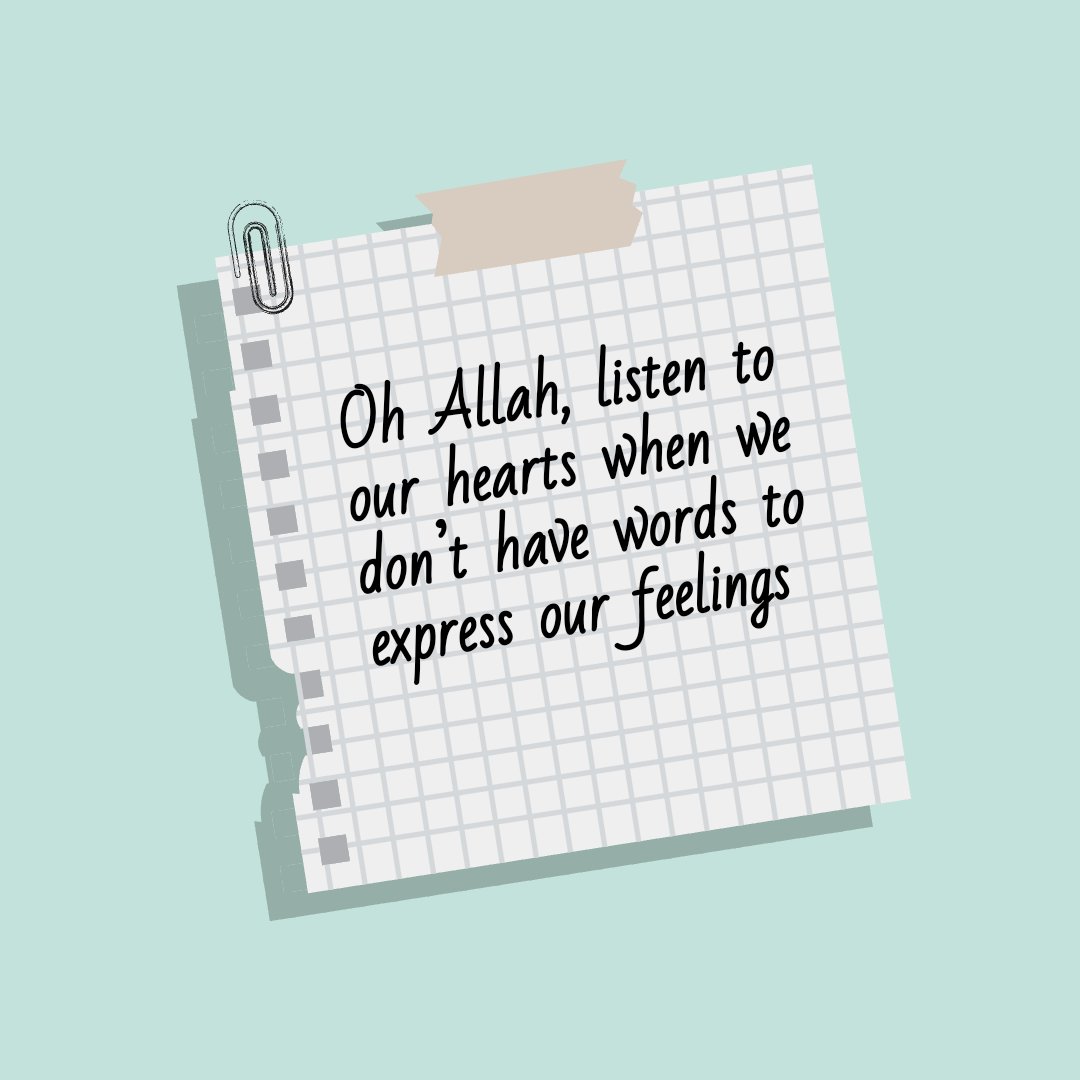 Oh Allah, listen to
our hearts when we
don't have words to
express our feelings